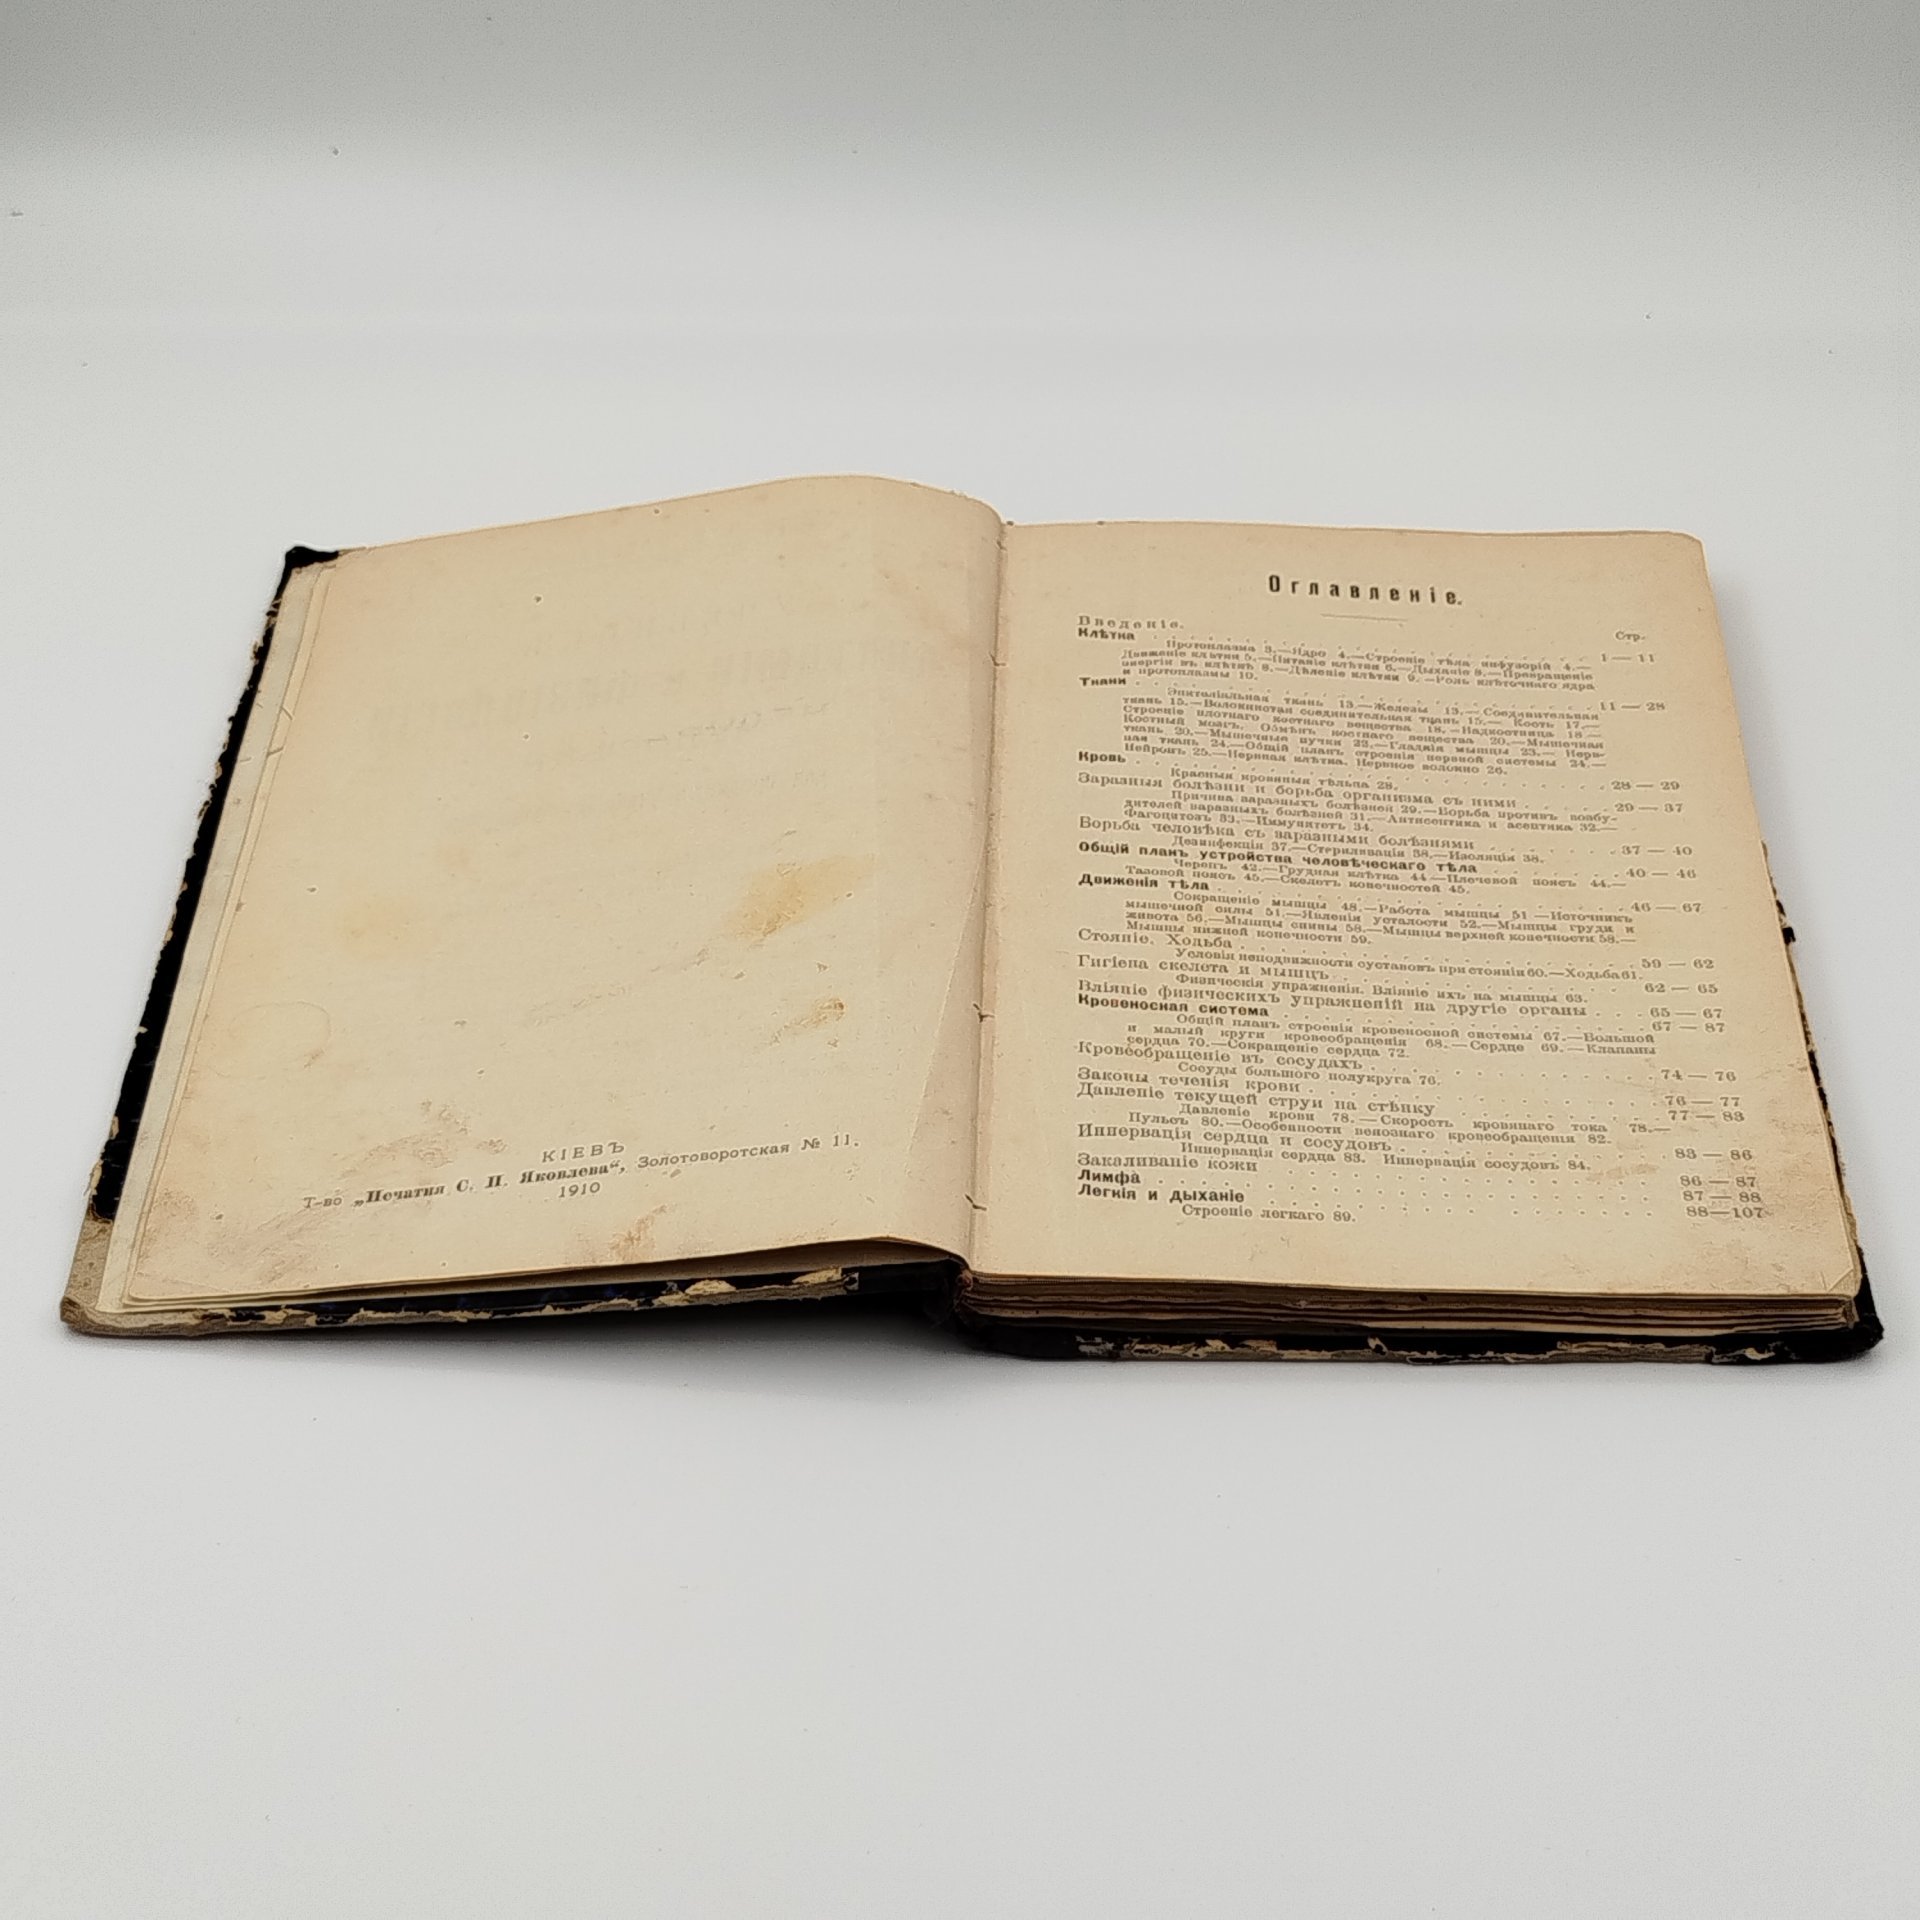 КІЕВЪ
Т-во „Печатня С. П. Яковлева“, Золотоворотская № 11.
1910
Оглавленіе.
Стр.
Введеніе.
Клѣтка . . . . . . . . . . . . . . 1 — 11
Протоплазма 3.—Ядро 4.—Строеніе тѣла инфузорій 4.—
Движеніе клѣтки 5.—Питаніе клѣтки 6.—Дыханіе 8.—Превращеніе
энергіи въ клѣткѣ 8.—Дѣленіе клѣтки 9.—Роль клѣточнаго ядра
и протоплазмы 10.
Ткани . . . . . . . . . . . . . . 11 — 28
Эпителіальная ткань 13.—Железы 13.—Соединительная
ткань 15.—Волокнистая соединительная ткань 15.—Кость 17.—
Строеніе плотнаго костнаго вещества 18.—Надкостница 18—
Костный мозгъ. Обмѣнъ костнаго вещества 20.—Мышечная
ткань 20.—Мышечные пучки 22.—Гладкія мышцы 23.—Нерв-
ная ткань 24.—Общій планъ строенія нервной системы 24.—
Нейронъ 25.—Нервная клѣтка. Нервное волокно 26.
Кровь . . . . . . . . . . . . . . 28 — 29
Красныя кровяныя тѣльца 28.
Заразныя болѣзни и борьба организма съ ними . . . . . 29 — 37
Причина заразныхъ болѣзней 29.—Борьба противъ возбу-
дителей заразныхъ болѣзней 31.—Антисептика и асептика 32.—
Фагоцитозъ 33.—Иммунитетъ 34.
Борьба человѣка съ заразными болѣзнями . . . . . . 37 — 40
Дезинфекція 37.—Стерилизація 38.—Изоляція 38.
Общій планъ устройства человѣческаго тѣла . . . . . . 40 — 46
Черепъ 42.—Грудная клѣтка 44—Плечевой поясъ 44.—
Тазовой поясъ 45.—Скелетъ конечностей 45.
Движенія тѣла . . . . . . . . . . . . . . 46 — 67
Сокращеніе мышцы 48.—Работа мышцы 51—Источникъ
мышечной силы 51.—Явленія усталости 52.—Мышцы груди и
живота 56.—Мышцы спины 58.—Мышцы верхней конечности 58.—
Мышцы нижней конечности 59.
Стояніе. Ходьба . . . . . . . . . . . . . . 59 — 62
Условія неподвижности суставовъ при стояніи 60.—Ходьба 61.
Гигіена скелета и мышцъ . . . . . . . . . . . 62 — 65
Физическія упражненія. Вліяніе ихъ на мышцы 63.
Вліяніе физическихъ упражненій на другіе органы . . . 65 — 67
Кровеносная система . . . . . . . . . . . . . 67 — 87
Общій планъ строенія кровеносной системы 67.—Большой
и малый круги кровообращенія 68.—Сердце 69.—Клапаны
сердца 70.—Сокращеніе сердца 72.
Кровеобращеніе въ сосудахъ . . . . . . . . . . . 74 — 76
Сосуды большого полукруга 76.
Законы теченія крови . . . . . . . . . . . . . 76 — 77
Давленіе текущей струи на стѣнку . . . . . . . . . 77 — 83
Давленіе крови 78.—Скорость кровяного тока 78.—
Пульсъ 80.—Особенности венознаго кровеобращенія 82.
Иннервація сердца и сосудовъ . . . . . . . . . . . 83 — 86
Иннервація сердца 83. Иннервація сосудовъ 84.
Закаливаніе кожи . . . . . . . . . . . . . . 86 — 87
Лимфа . . . . . . . . . . . . . . 87 — 88
Легкія и дыханіе . . . . . . . . . . . . . . 88—107
Строеніе легкаго 89.